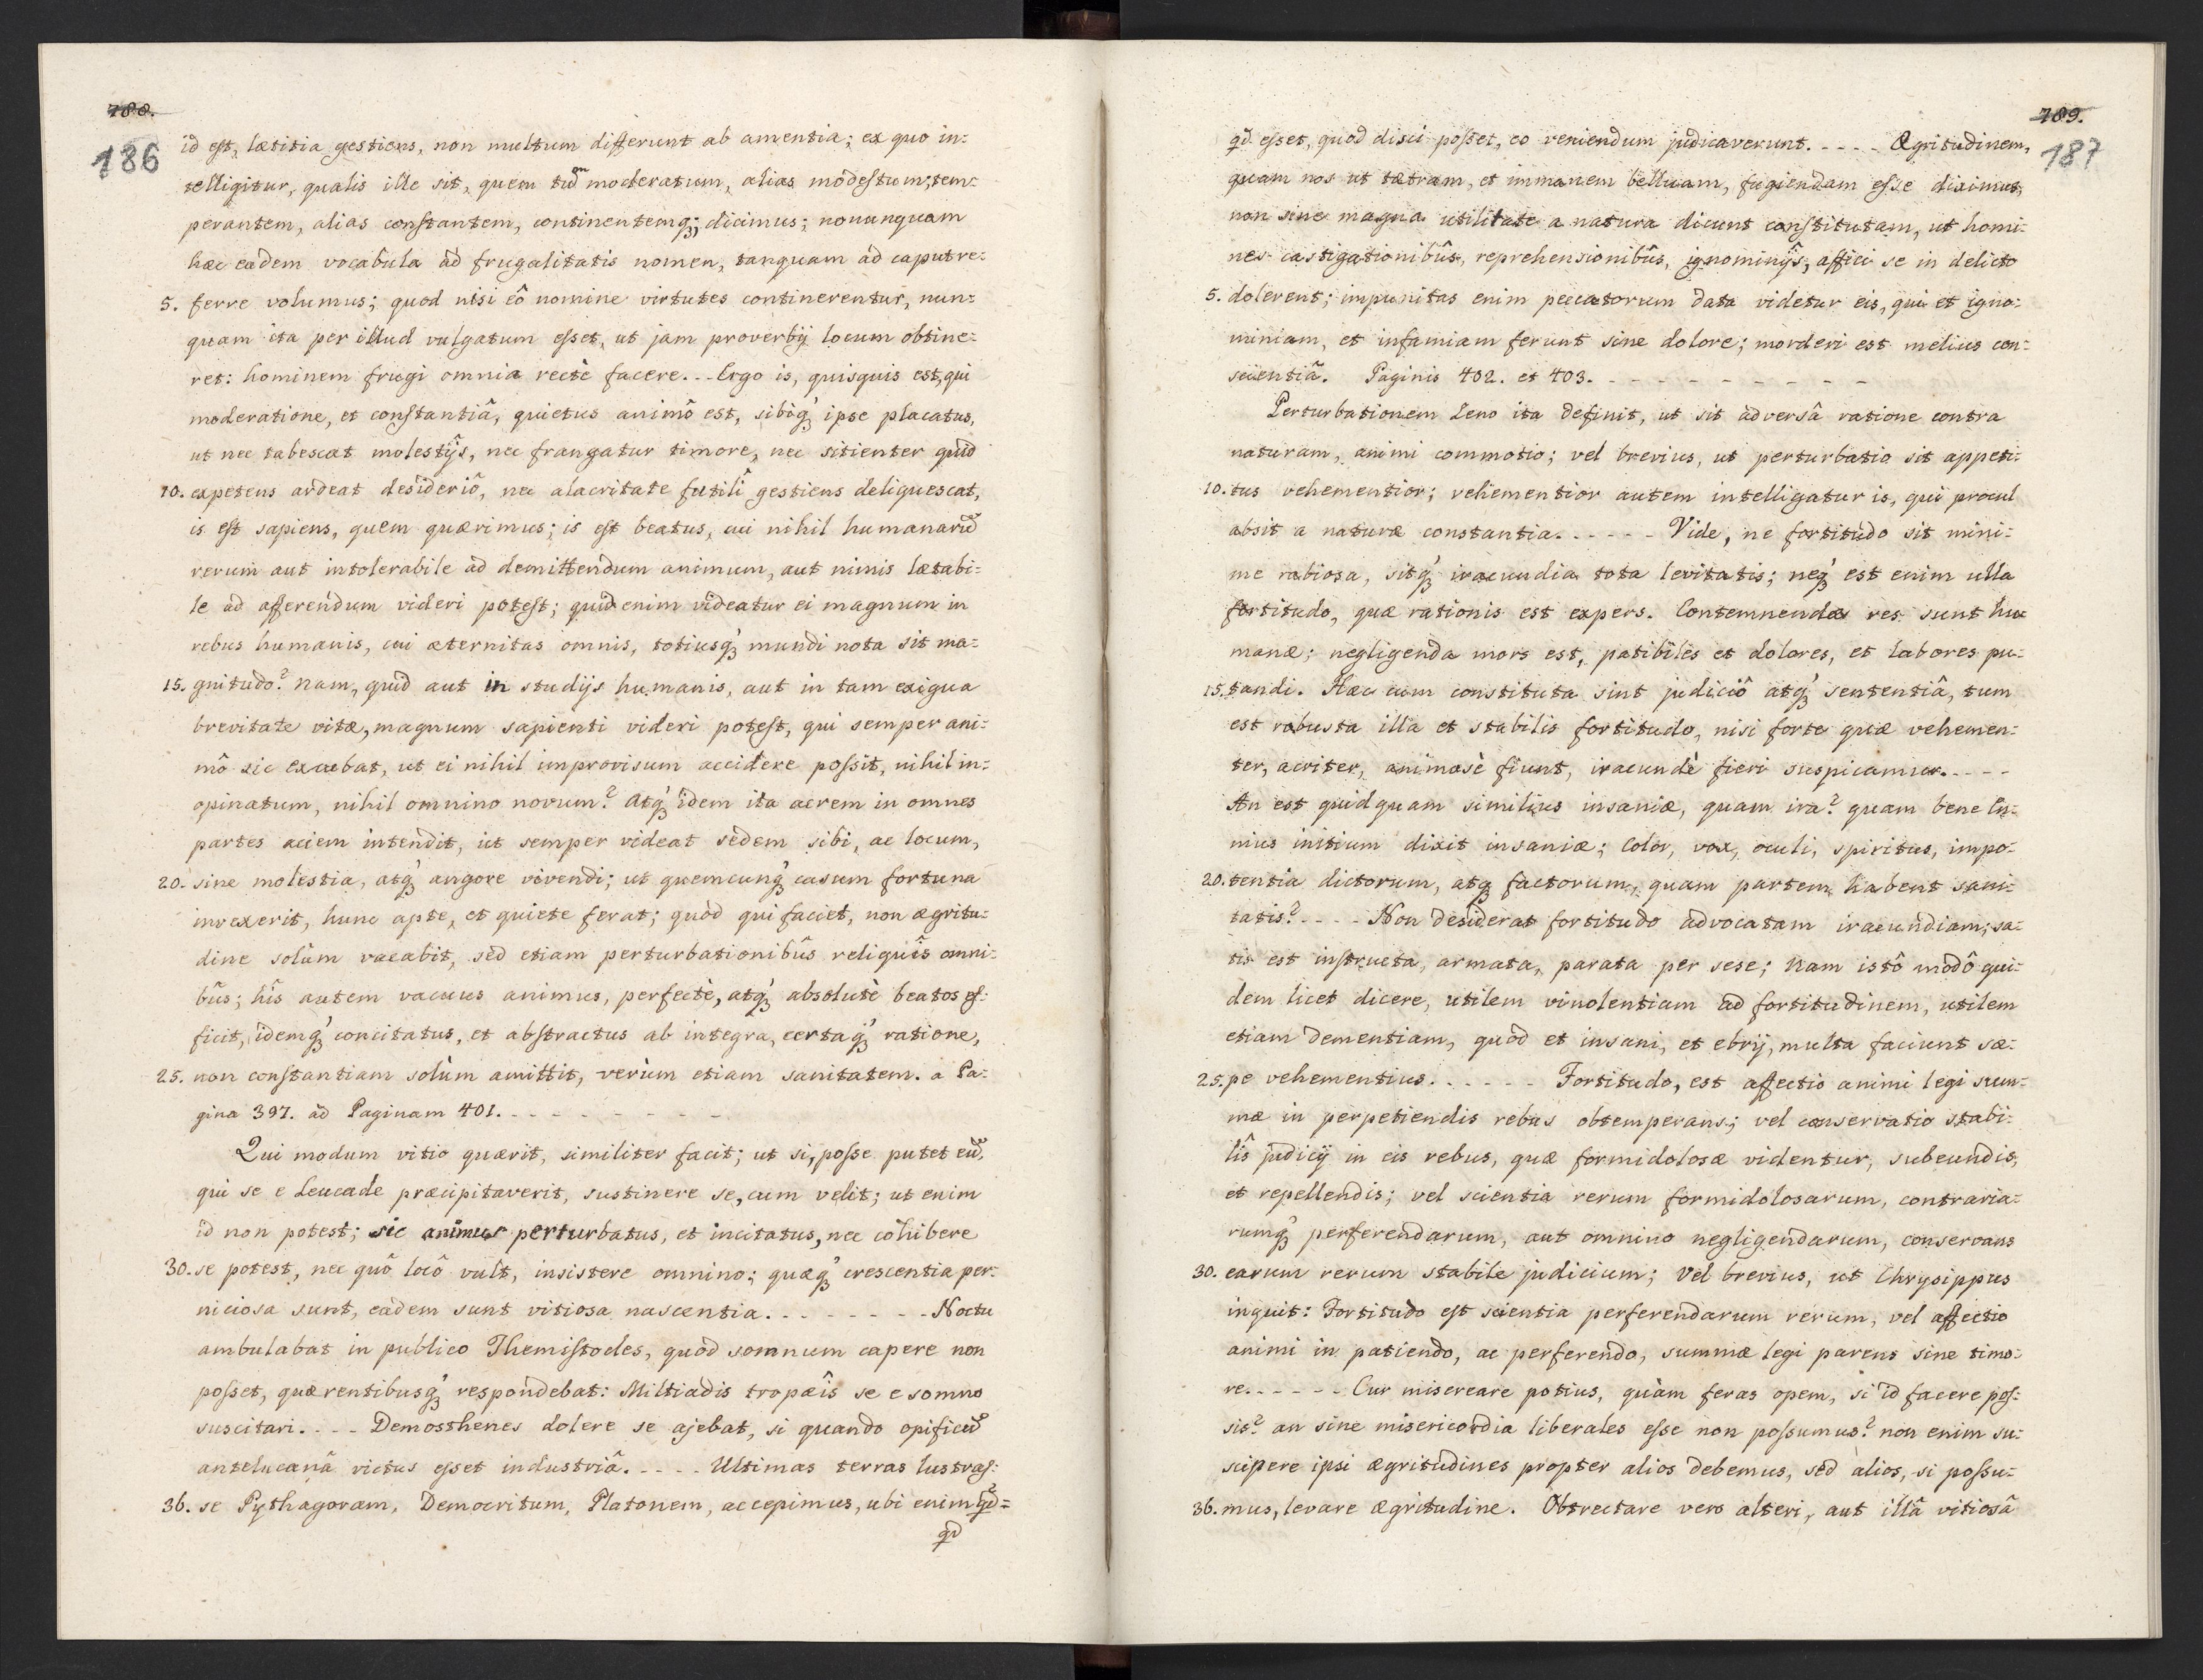 788.
186
id est, lætitia gestiens, non multum differunt ab amentia; ex quo in:
telligitur, qualis ille sit, quem tum moderatum, alias modestum, tem:
perantem, alias constantem, continentemq; dicimus; nonunquam
hæc eadem vocabula ad frugalitatis nomen, tanquam ad caput re:
5. ferre volumus; quod nisi eô nomine virtutes continerentur, nun:
quam ita per illud vulgatum esset, ut jam proverbij locum obtine:
ret: hominem frugi omnia rectè facere. - - Ergo is, quisquis est, qui
moderatione, et constantiâ, quietus animô est, sibiq; ipse placatus,
ut nec tabescat molestijs, nec frangatur timore, nec sitienter quid
10. expetens ardeat desideriô, nec alacritate futili gestiens deliquescat,
is est sapiens, quem quærimus; is est beatus, cui nihil humanarũ
rerum aut intolerabile ad demittendum animum, aut nimis lætabi:
le ad afferendum videri potest; quid enim videatur ei magnum in
rebus humanis, cui æternitas omnis, totiusq; mundi nota sit ma:
15. gnitudo? nam, quid aut in studijs humanis, aut in tam exigua
brevitate vitæ, magnum sapienti videri potest, qui semper ani:
mô sic excubat, ut ei nihil improvisum accidere possit, nihil in:
opinatum, nihil omnino novum? atq; idem ita acrem in omnes
partes aciem intendit, ut semper videat sedem sibi, ac locum,
20. sine molestia, atq; angore vivendi; ut quemcunq; casum fortuna
invexerit, hunc apte, et quiete ferat; quod qui faciet, non ægritu:
dine solùm vacabit, sed etiam perturbationibûs reliquîs omni:
bûs; hîs autem vacuus animus, perfectè, atq; absolutè beatos ef:
ficit, idemq; concitatus, et abstractus ab integra, certaq; ratione,
25. non constantiam solùm amittit, verùm etiam sanitatem. a Pa:
gina 397. ad Paginam 401. - - - - - - - - -
Qui modum vitio quærit, similiter facit; ut si, posse putet eũ,
qui se e Leucade præcipitaverit, sustinere se, cum velit; ut enim
id non potest; sic animus perturbatus, et incitatus, nec cohibere
30. se potest, nec quô locô vult, insistere omnino; quæq; crescentia per:
niciosa sunt, eadem sunt vitiosa nascentia. - - - - - - - - Noctu
ambulabat in publico Themistocles, quòd somnum capere non
posset, quærentibusq; respondebat: Miltiadis tropæîs se e somno
suscitari. - - - Demosthenes dolere se ajebat, si quando opificũ
antelucanâ victus esset industriâ. - - - - Ultimas terras lustras:
36. se Pythagoram, Democritum, Platonem, accepimus, ubi enim qd=
qd
789.
187
qd. esset, quod disci posset, eo veniendum judicaverunt. - - - - Ægritudinem,
quam nos ut tætram, et immanem belluam, fugiendam esse diximus,
non sine magna utilitate a natura dicunt constitutam, ut homi:
nes castigationibûs, reprehensionibûs, ignominijs, affici se in delicto
5. dolerent; impunitas enim peccatorum data videtur eis, qui et igno:
miniam, et infamiam ferunt sine dolore; morderi est melius con:
scientiâ. Paginis 402. et 403. - - - - - - - - - -
Perturbationem Zeno ita definit, ut sit adversâ ratione contra
naturam, animi commotio; vel brevius, ut perturbatio sit appeti:
10. tus vehementior; vehementior autem intelligatur is, qui procul
absit a naturæ constantia. - - - - - Vide, ne fortitudo sit mini:
me rabiosa, sitq; iracundia tota levitatis; neq; est enim ulla
fortitudo, quæ rationis est expers. Contemnendæ res sunt hu
manæ; negligenda mors est, patibiles et dolores, et labores pu:
15. tandi. Hæc cum constituta sint judiciô atq; sententiâ, tum
est robusta illa et stabilis fortitudo, nisi forte quæ vehemen:
ter, acriter, animosè fiunt, iracundè fieri suspicamur. - - - -
An est quidquam similius insaniæ, quam ira? quam bene En:
nius initium dixit insaniæ; Color, vox, oculi, spiritus, impo:
20. tentia dictorum, atq; factorum, quam partem habent sani:
tatis? - - - - Non desiderat fortitudo advocatam iracundiam; sa:
tis est instructa, armata, parata per sese; nam istô modô qui:
dem licet dicere, utilem vinolentiam ad fortitudinem, utilem
etiam dementiam, quòd et insani, et ebrij, multa faciunt sæ:
25. pe vehementius. - - - - - - Fortitudo, est affectio animi legi sum:
mæ in perpetiendis rebus obtemperans; vel conservatio stabi:
lîs judicij in eis rebus, quæ formidolosæ videntur, subeundis,
et repellendis; vel scientia rerum formidolosarum, contraria:
rumq; perferendarum, aut omnino negligendarum, conservans
30. earum rerum stabile judicium; vel brevius, ut Chrysippus
inquit: Fortitudo est scientia perferendarum rerum, vel affectio
animi in patiendo, ac perferendo, summæ legi parens sine timo:
re. - - - - - - Cur misereare potius, quàm feras opem, si id facere pos:
sis? an sine misericordia liberales esse non possumus? non enim su:
scipere ipsi ægritudines propter alios debemus, sed alios, si possu:
36. mus, levare ægritudine. Obtrectare vero alteri, aut illâ vitiosâ